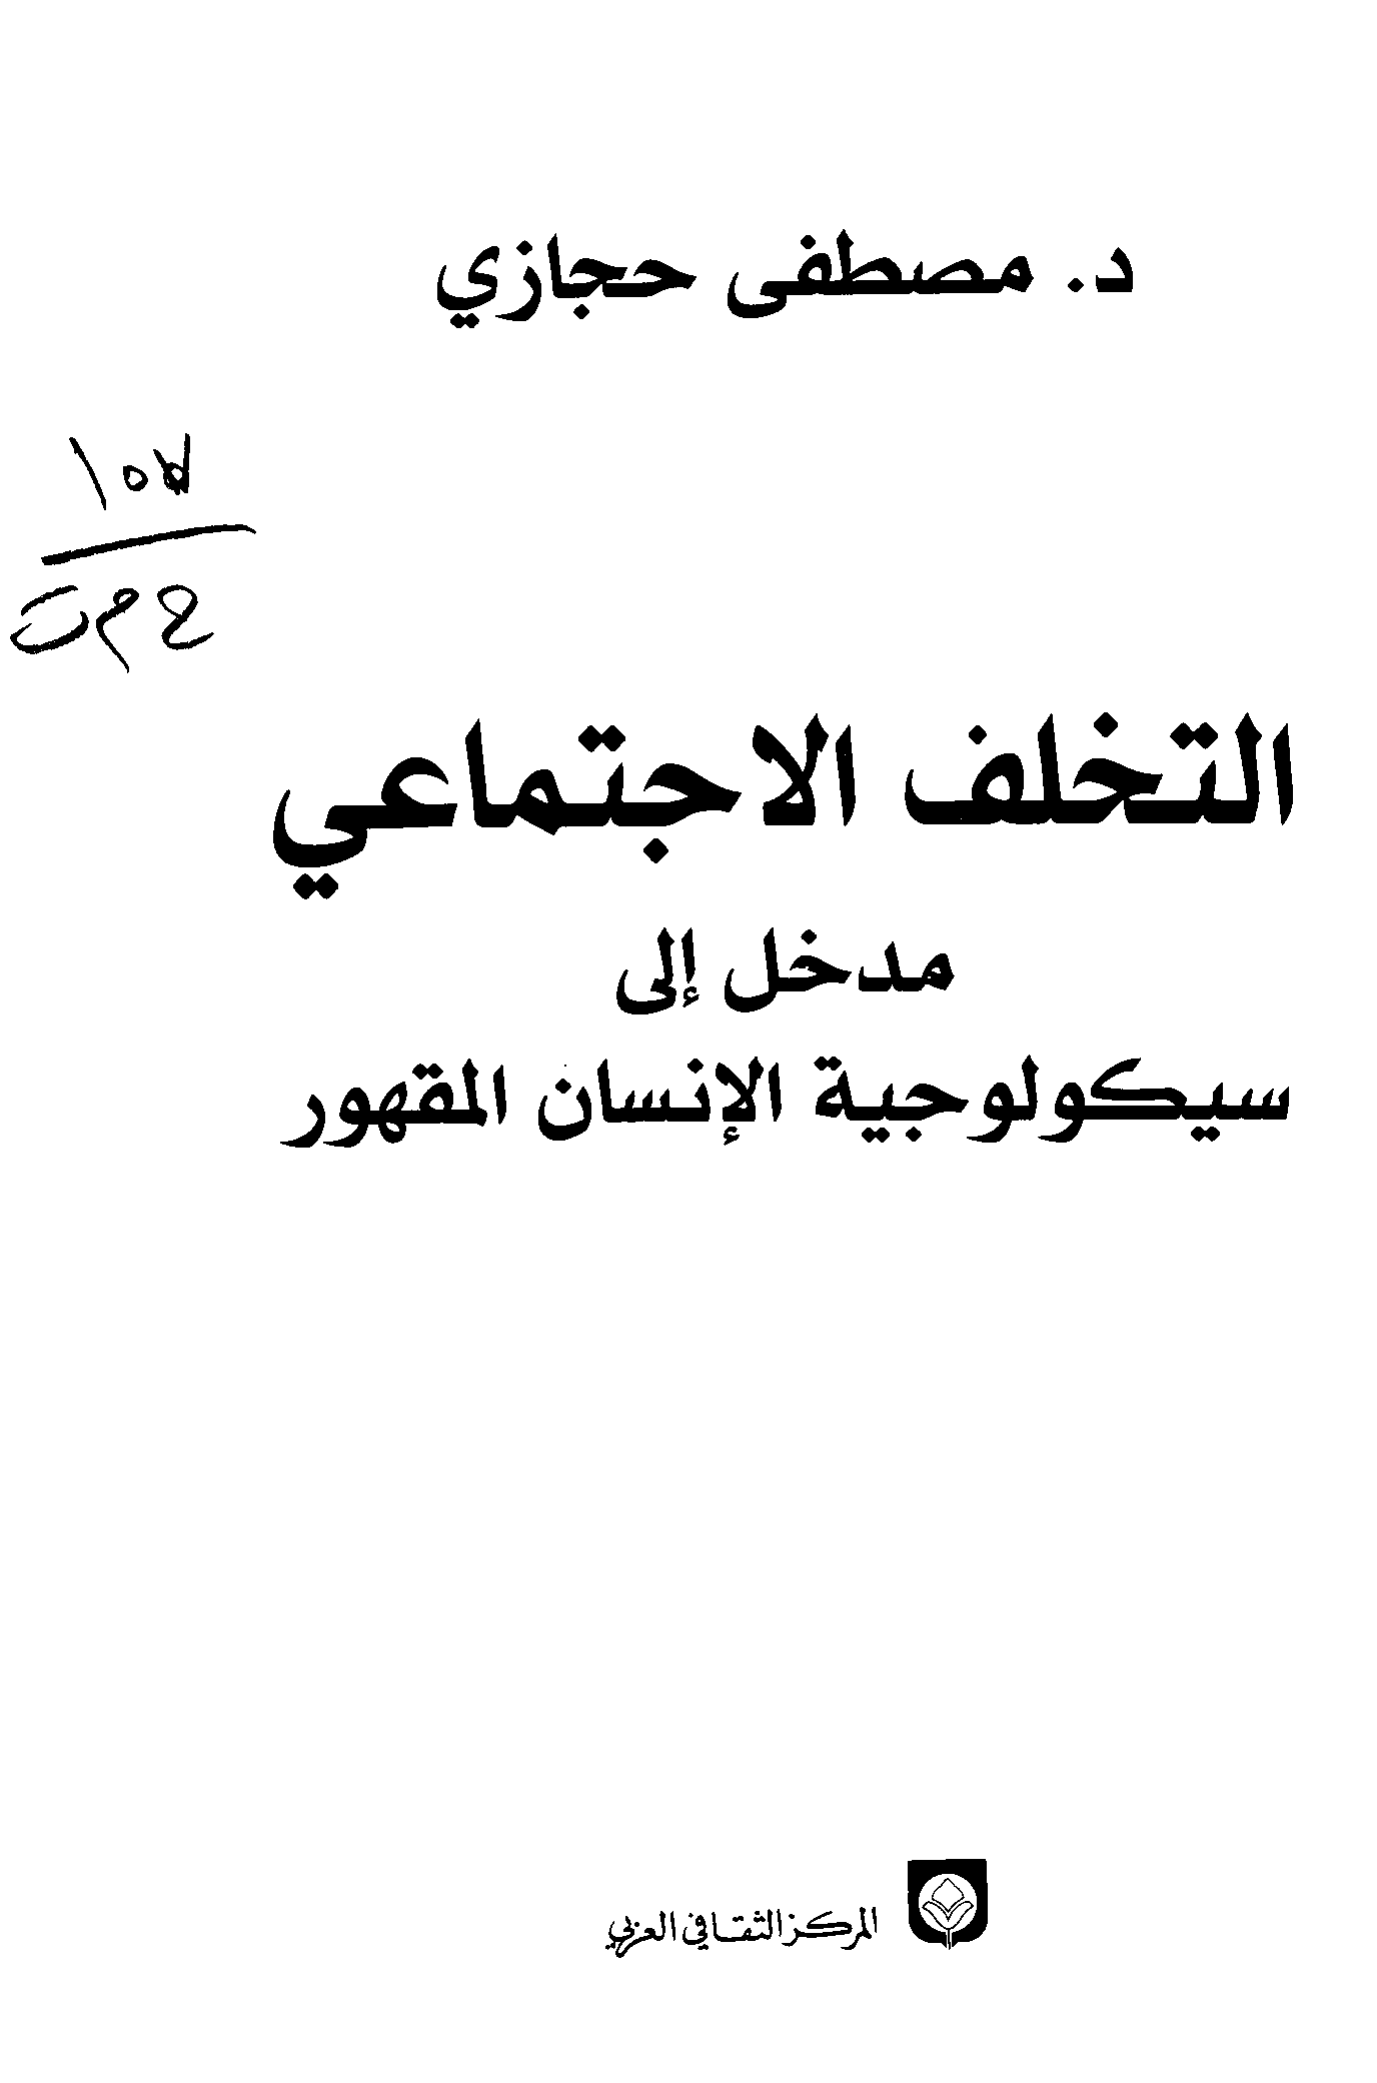 د. مصطفى حجازي
ح م ت
التخلف الاجتماعي
مدخل إلى
سيكولوجية الإنسان المقهور
المركز الثقافي العربي